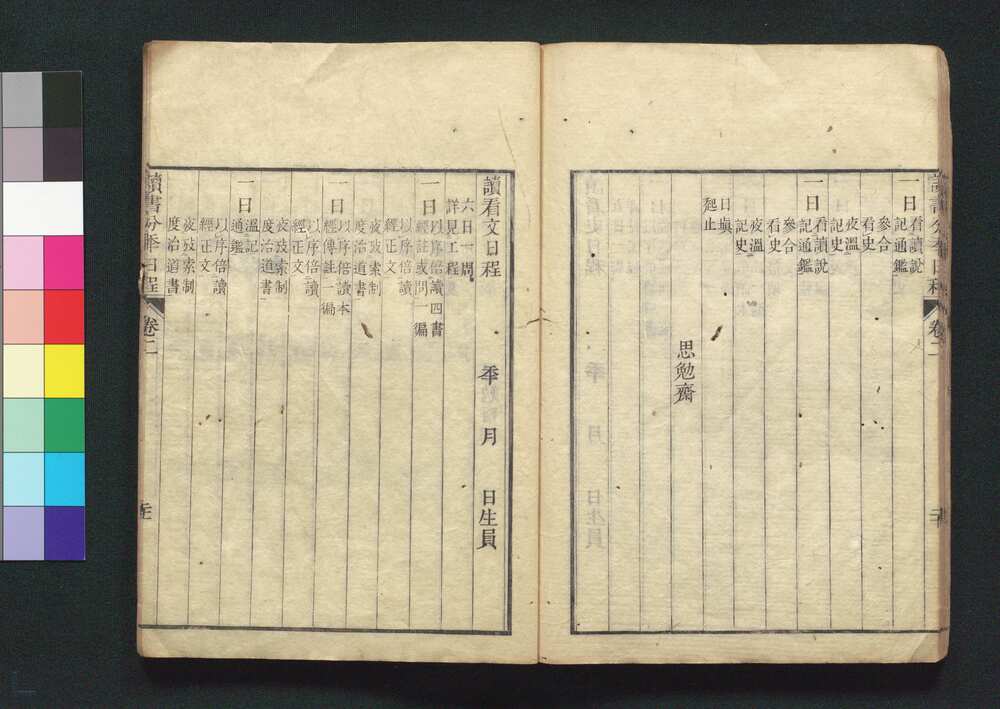 讀書分秊日程 卷二
一日 看讀說
記通鑑
參合
看史
夜溫
記史
一日 看讀說
記通鑑
參合
看史
夜溫
記史
日塡
起止
思勉齋
讀看文日程 秊 月 日生員
六日一周
詳見工程
一日 以序倍讀四書
經註或問一徧
以序倍讀
經正文
夜攷索制
度治道書
一日 以序倍讀本
經傳註一徧
以序倍讀
經正文
夜攷索制
度治道書
一日 溫記
通鑑
以序倍讀
經正文
夜攷索制
度治道書
讀書分秊日程 卷二